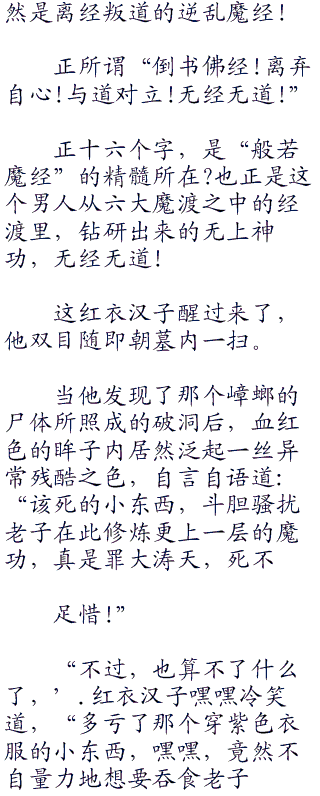 然是离经叛道的逆乱魔经!
正所谓“倒书佛经!离弃
自心!与道对立!无经无道!”
正十六个字，是“般若
魔经”的精髓所在?也正是这
个男人从六大魔渡之中的经
渡里，钻研出来的无上神
功，无经无道!
这红衣汉子醒过来了，
他双目随即朝墓内一扫。
当他发现了那个嶂螂的
尸体所照成的破洞后，血红
色的眸子内居然泛起一丝异
常残酷之色，自言自语道:
“该死的小东西，斗胆骚扰
老子在此修炼更上一层的魔
功，真是罪大涛天，死不
足惜!”
“不过，也算不了什么
了，’.红衣汉子嘿嘿冷笑
道，“多亏了那个穿紫色衣
服的小东西，嘿嘿，竟然不
自量力地想要吞食老子